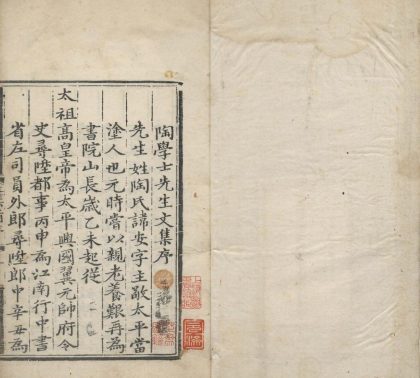 陶學士先生文集序
先生姓陶氏諱安字主敬太平當
塗人也元時嘗以親老養艱再為
書院山長歲乙未起從
太祖高皇帝為太平興國翼元帥府令
史尋陞都事丙申為江南行中書
省左司員外郎尋陞郎中辛丑為